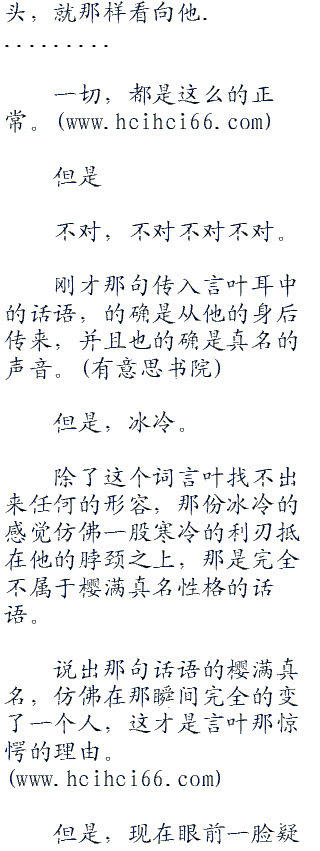 头，就那样看向他.
.........
一切，都是这么的正
常。(www.hcihci66.com)
但是
不对，不对不对不对。
刚才那句传入言叶耳中
的话语，的确是从他的身后
传来，并且也的确是真名的
声音。(有意思书院)
但是，冰冷。
除了这个词言叶找不出
来任何的形容，那份冰冷的
感觉仿佛一股寒冷的利刃抵
在他的脖颈之上，那是完全
不属于樱满真名性格的话
语。
说出那句话语的樱满真
名，仿佛在那瞬间完全的变
了一个人，这才是言叶那惊
愕的理由。
(www.hcihci66.com)
但是，现在眼前一脸疑